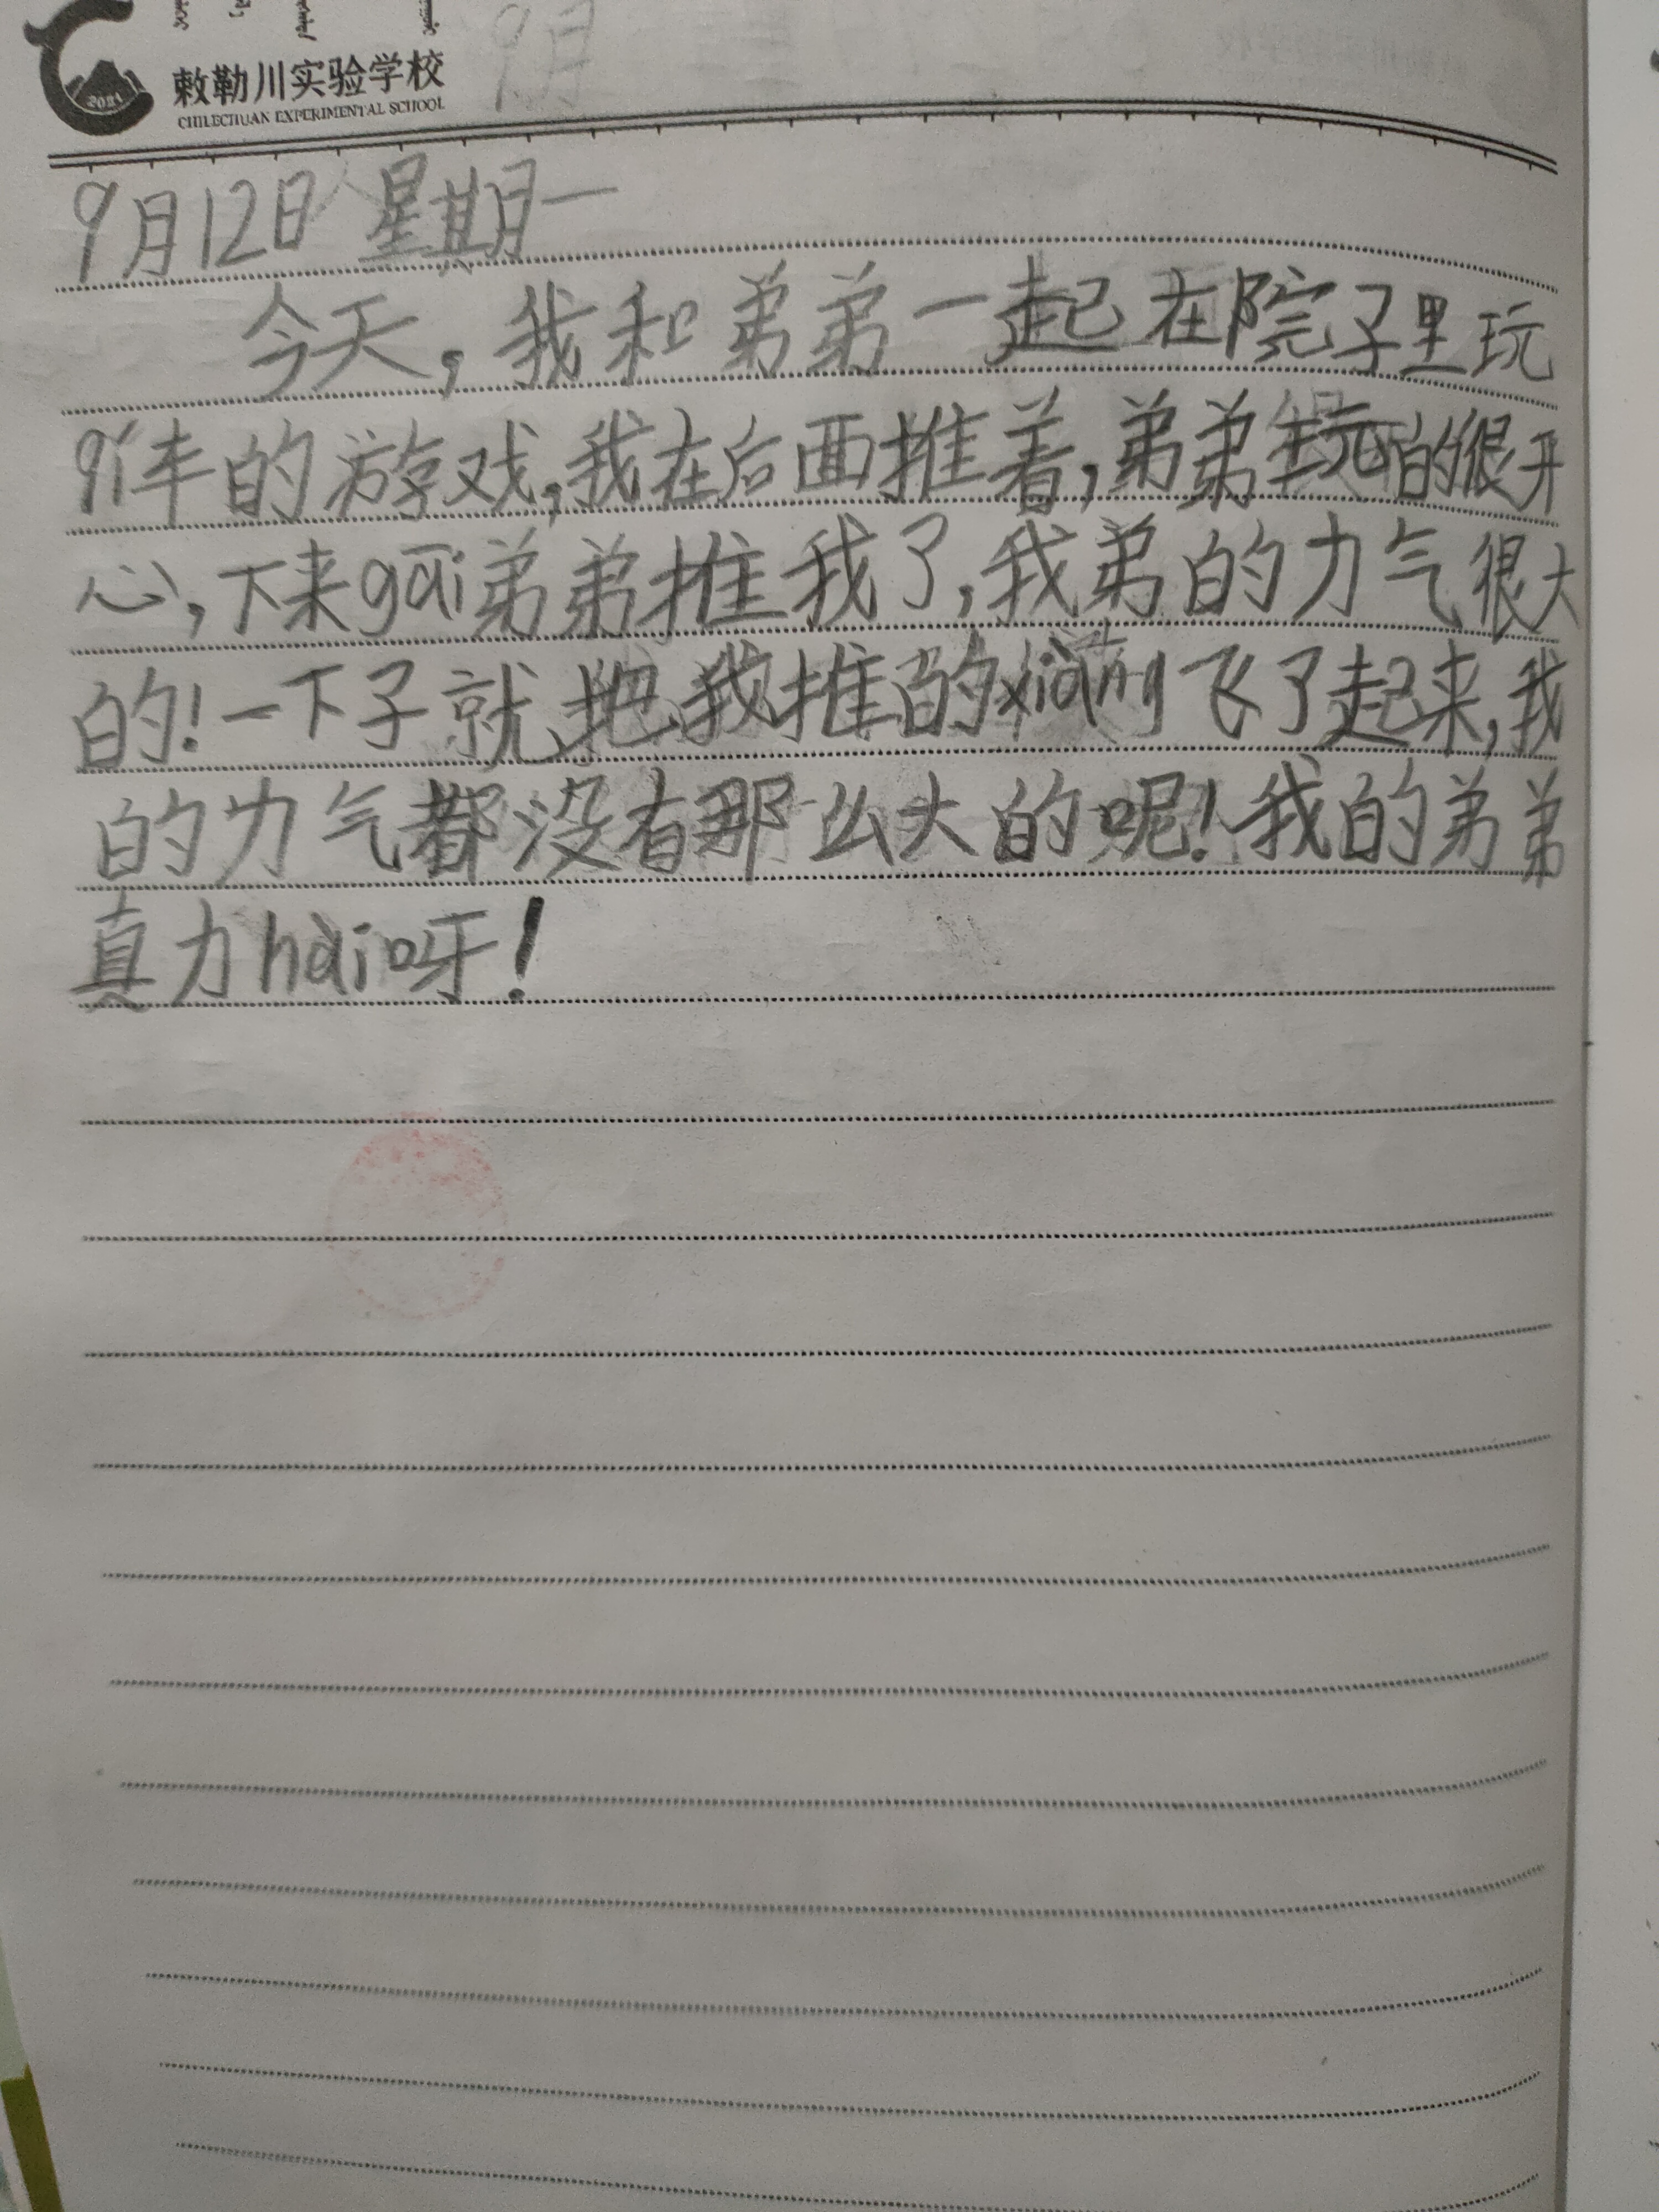 敕勒川实验学校
CHILECHUAN EXPERIMENTAL SCHOOL
2021
9月
9月12日 星期一
今天，我和弟弟一起在院子里玩
qí车的游戏，我在后面推着，弟弟玩的很开
心，下来gāi弟弟推我了，我弟的力气很大
的！一下子就把我推的xiàng飞了起来，我
的力气都没有那么大的呢！我的弟弟
真力hài呀！